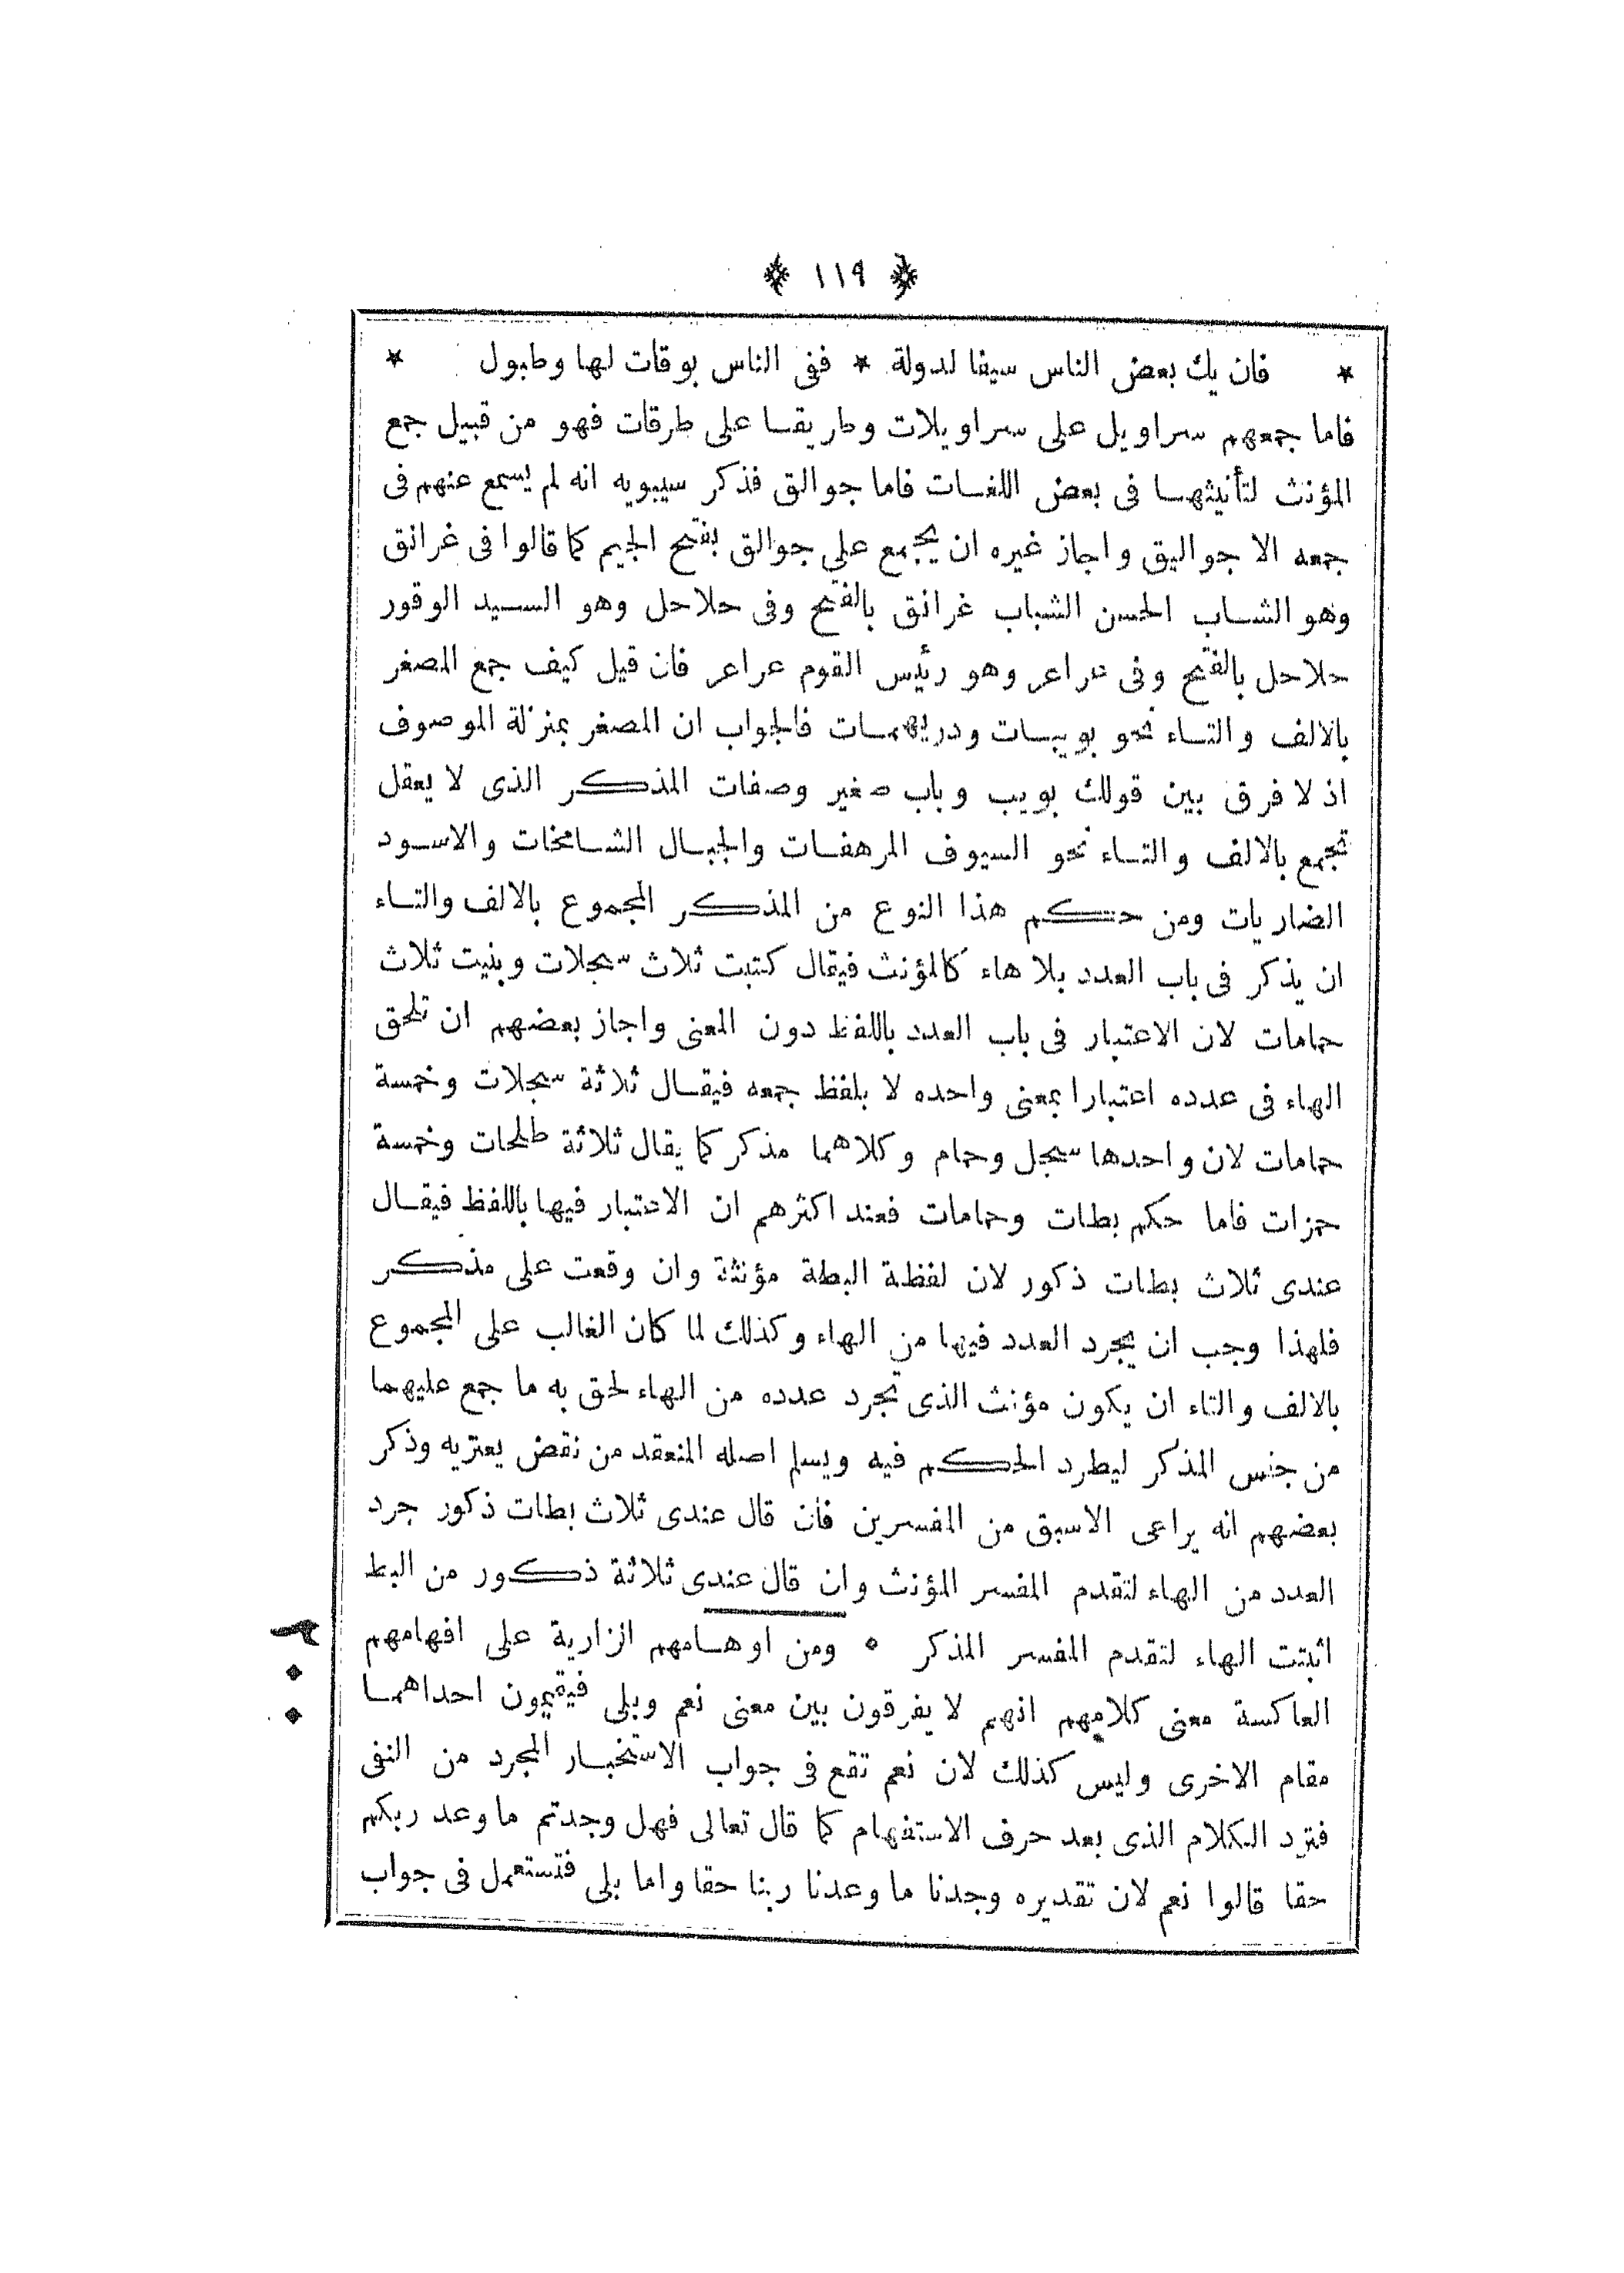 ﴿ ١١٩ ﴾
* فان يك بعض الناس سيفا لدولة * ففى الناس بوقات لها وطبول *
فاما جمعهم سراويل على سراويلات وطريقا على طرقات فهو من قبيل جمع
المؤنث لتأنيثها فى بعض اللغات فاما جوالق فذكر سيبويه انه لم يسمع عنهم فى
جمعه الا جواليق واجاز غيره ان يجمع على جوالق بفتح الجيم كما قالوا فى غرانق
وهو الشاب الحسن الشباب غرانق بالفتح وفى حلاحل وهو السيد الوقور
حلاحل بالفتح وفى عراعر وهو رئيس القوم عراعر فان قيل كيف جمع المصغر
بالالف والتاء نحو بويبات ودريهمات فالجواب ان المصغر بمنزلة الموصوف
اذ لا فرق بين قولك بويب وباب صغير وصفات المذكر الذى لا يعقل
تجمع بالالف والتاء نحو السيوف المرهفات والجبال الشامخات والاسود
الضاريات ومن حكم هذا النوع من المذكر المجموع بالالف والتاء
ان يذكر فى باب العدد بلا هاء كالمؤنث فيقال كتبت ثلاث سجلات وبنيت ثلاث
حمامات لان الاعتبار فى باب العدد باللفظ دون المعنى واجاز بعضهم ان تلحق
الهاء فى عدده اعتبارا بمعنى واحده لا بلفظ جمعه فيقال ثلاثة سجلات وخمسة
حمامات لان واحدها سجل وحمام وكلاهما مذكر كما يقال ثلاثة طلحات وخمسة
حمزات فاما حكم بطات وحمامات فعند اكثرهم ان الاعتبار فيها باللفظ فيقال
عندى ثلاث بطات ذكور لان لفظة البطة مؤنثة وان وقعت على مذكر
فلهذا وجب ان يجرد العدد فيها من الهاء وكذلك لما كان الغالب على المجموع
بالالف والتاء ان يكون مؤنث الذى تجرد عدده من الهاء لحق به ما جمع عليهما
من جنس المذكر ليطرد الحكم فيه ويسلم اصله المنعقد من نقض يعتريه وذكر
بعضهم انه يراعى الاسبق من المفسرين فان قال عندى ثلاث بطات ذكور جرد
العدد من الهاء لتقدم المفسر المؤنث وان قال عندى ثلاثة ذكور من البط
اثبتت الهاء لتقدم المفسر المذكر ٥ ومن اوهامهم الزارية على افهامهم
العاكسة معنى كلامهم انهم لا يفرقون بين معنى نعم وبلى فيقيمون احداهما
مقام الاخرى وليس كذلك لان نعم تقع فى جواب الاستخبار المجرد من النفى
فترد الكلام الذى بعد حرف الاستفهام كما قال تعالى فهل وجدتم ما وعد ربكم
حقا قالوا نعم لان تقديره وجدنا ما وعدنا ربنا حقا واما بلى فتستعمل فى جواب